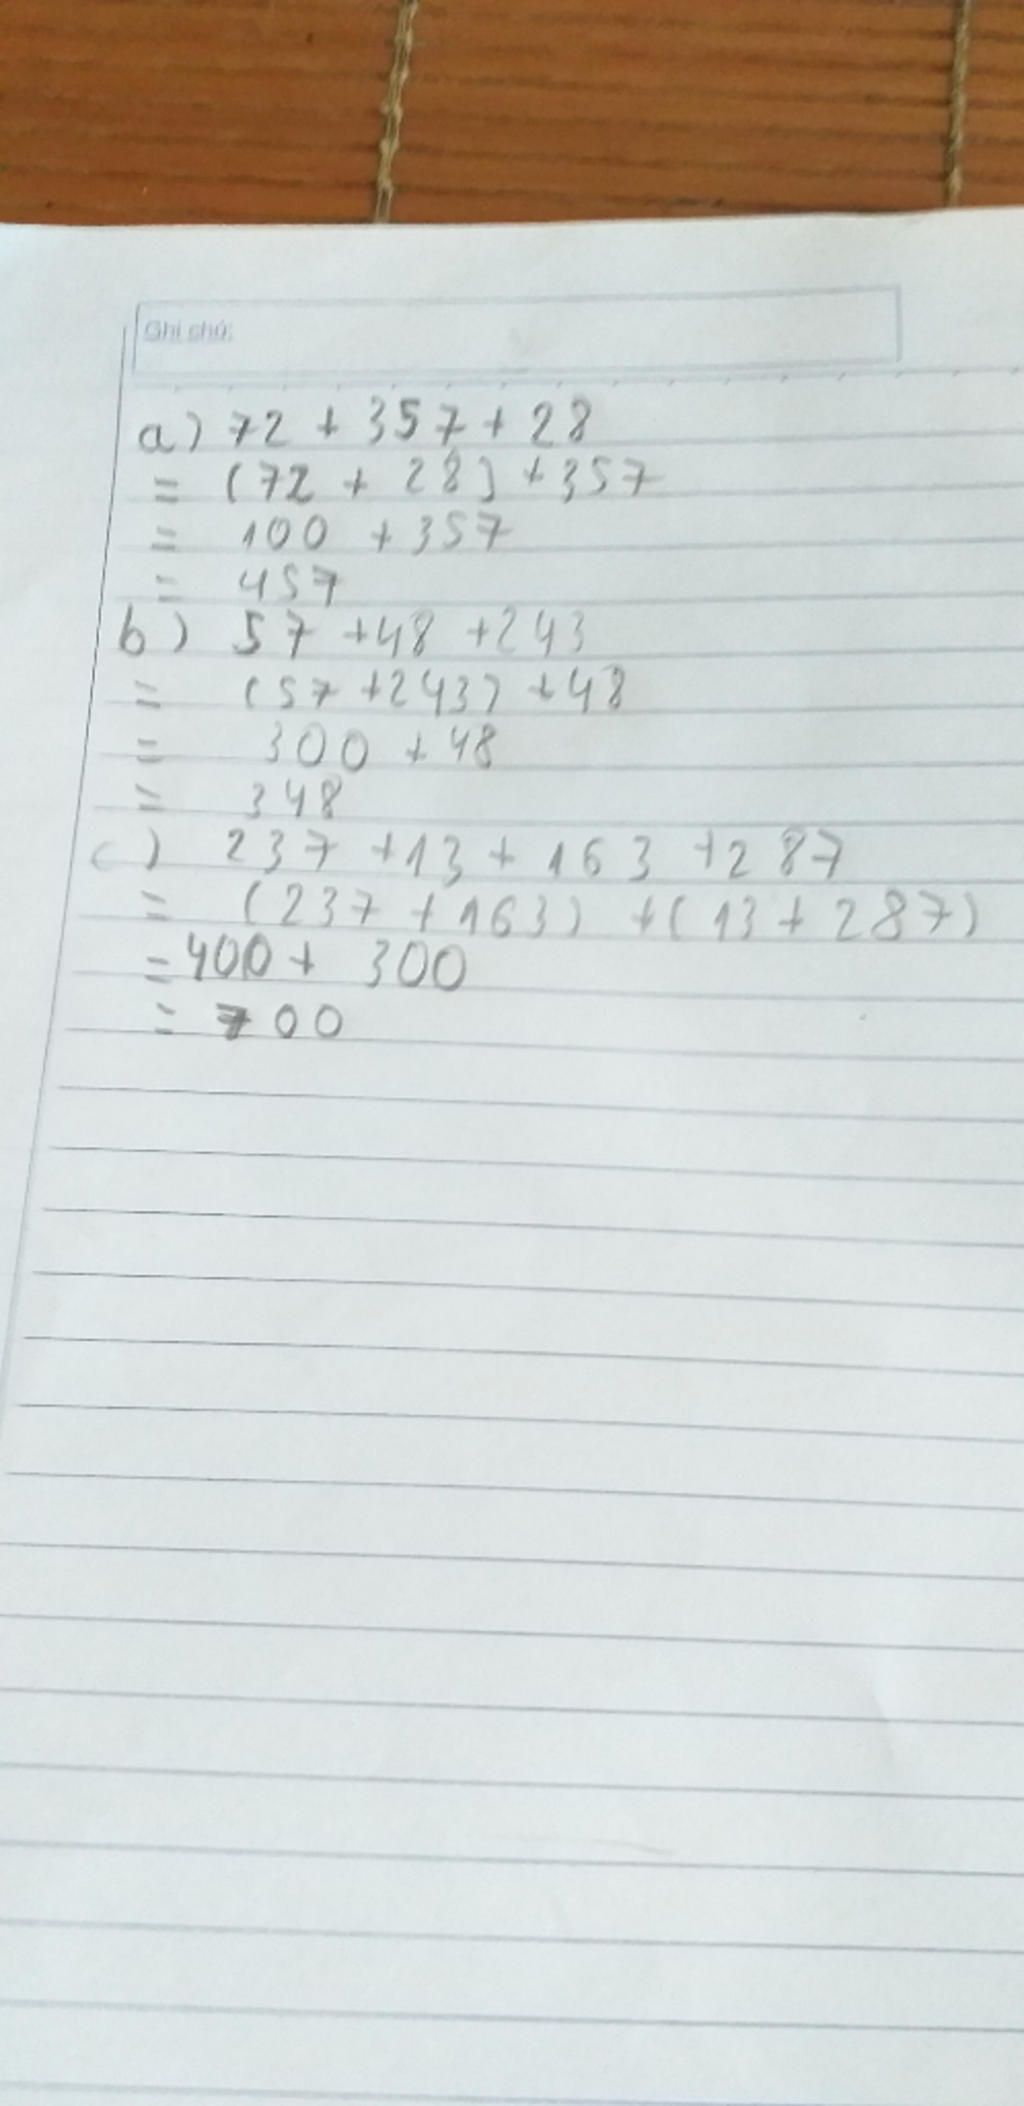 Ghi chú:
a) 72 + 357 + 28
= (72 + 28) + 357
= 100 + 357
= 457
b) 57 + 48 + 243
= (57 + 243) + 48
= 300 + 48
= 348
c) 237 + 13 + 163 + 287
= (237 + 163) + (13 + 287)
= 400 + 300
= 700